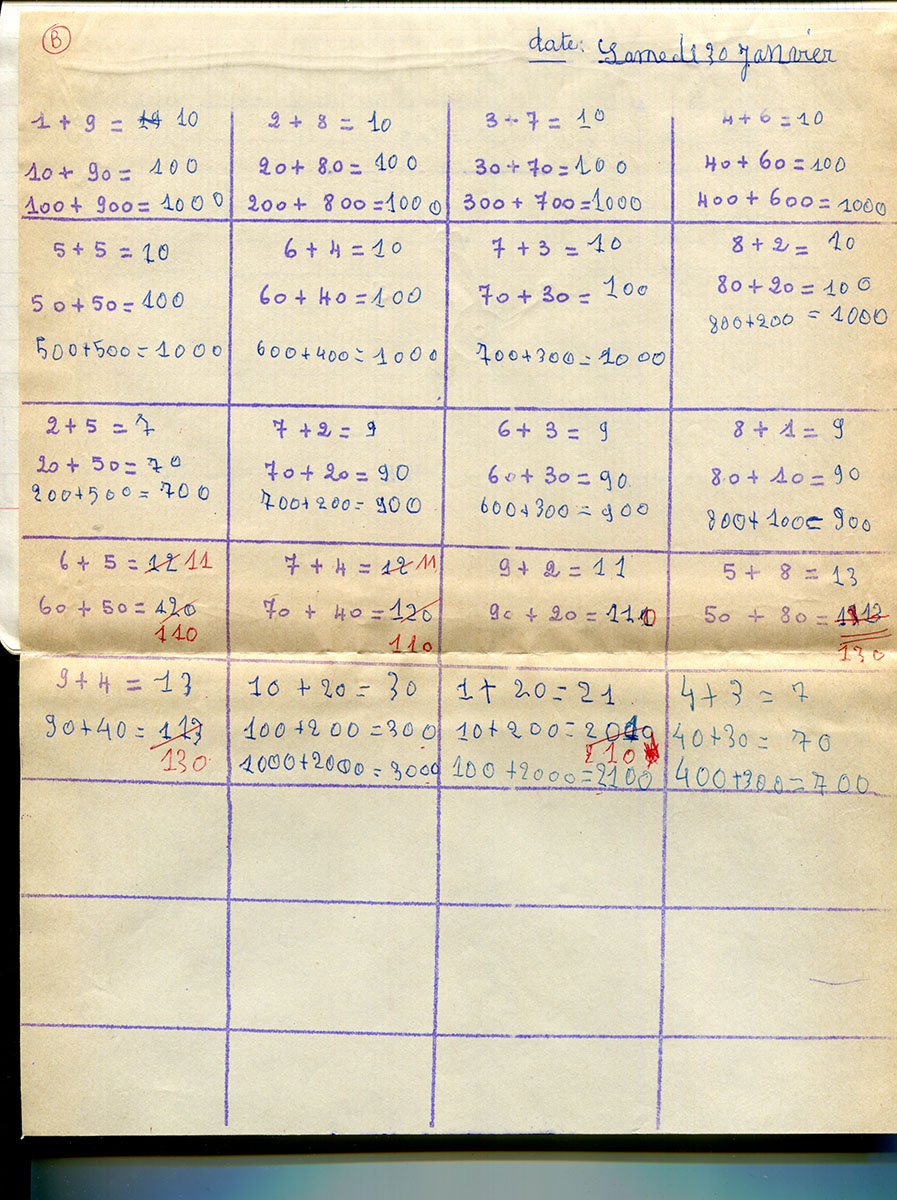 B
date: Samedi 30 Janvier
1 + 9 = 11 10
10 + 90 = 100
100 + 900 = 1000
2 + 8 = 10
20 + 80 = 100
200 + 800 = 1000
3 + 7 = 10
30 + 70 = 100
300 + 700 = 1000
4 + 6 = 10
40 + 60 = 100
400 + 600 = 1000
5 + 5 = 10
50 + 50 = 100
500 + 500 = 1000
6 + 4 = 10
60 + 40 = 100
600 + 400 = 1000
7 + 3 = 10
70 + 30 = 100
700 + 300 = 1000
8 + 2 = 10
80 + 20 = 100
800 + 200 = 1000
2 + 5 = 7
20 + 50 = 70
200 + 500 = 700
7 + 2 = 9
70 + 20 = 90
700 + 200 = 900
6 + 3 = 9
60 + 30 = 90
600 + 300 = 900
8 + 1 = 9
80 + 10 = 90
800 + 100 = 900
6 + 5 = 12 11
60 + 50 = 120
110
7 + 4 = 12 11
70 + 40 = 120
110
9 + 2 = 11
90 + 20 = 110
5 + 8 = 13
50 + 80 = 113
130
9 + 4 = 13
90 + 40 = 113
130
10 + 20 = 30
100 + 200 = 300
1000 + 2000 = 3000
1 + 20 = 21
10 + 200 = 2010
210
100 + 2000 = 2100
4 + 3 = 7
40 + 30 = 70
400 + 300 = 700